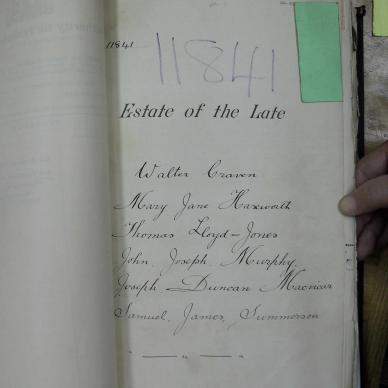 11841
11841
Estate of the Late
Walter Craven
Mary Jane Haxworth
Thomas Lloyd-Jones
John Joseph Murphy
Joseph Duncan Macvicar
Samuel James Summerson